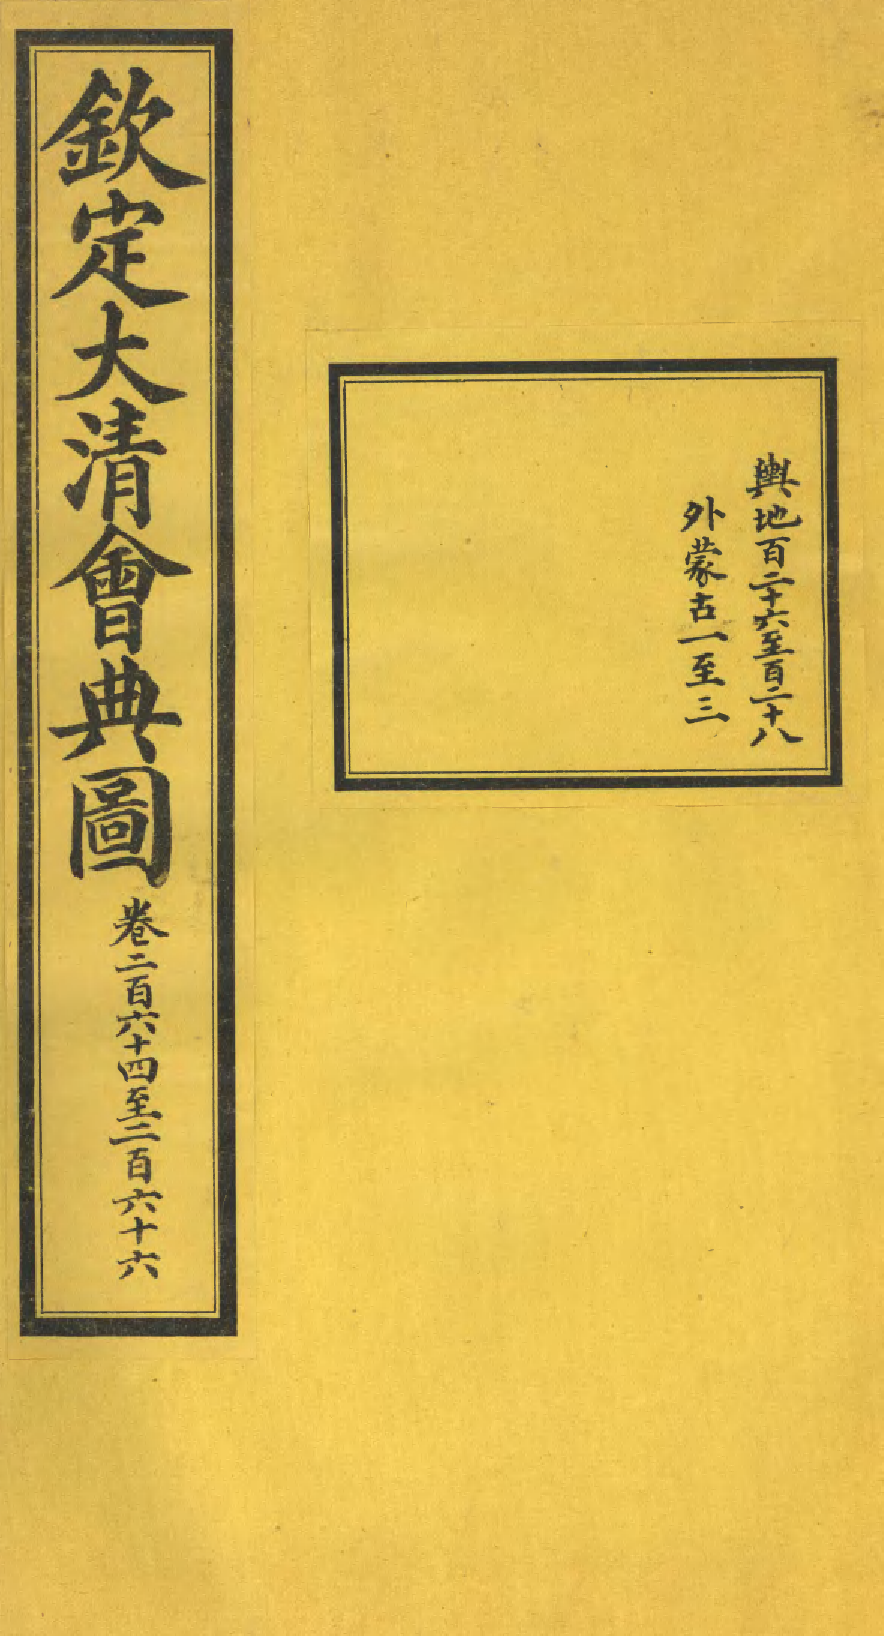 輿地百二十六至百二十八
外蒙古一至三
欽定大清會典圖
卷二百六十四至二百六十六